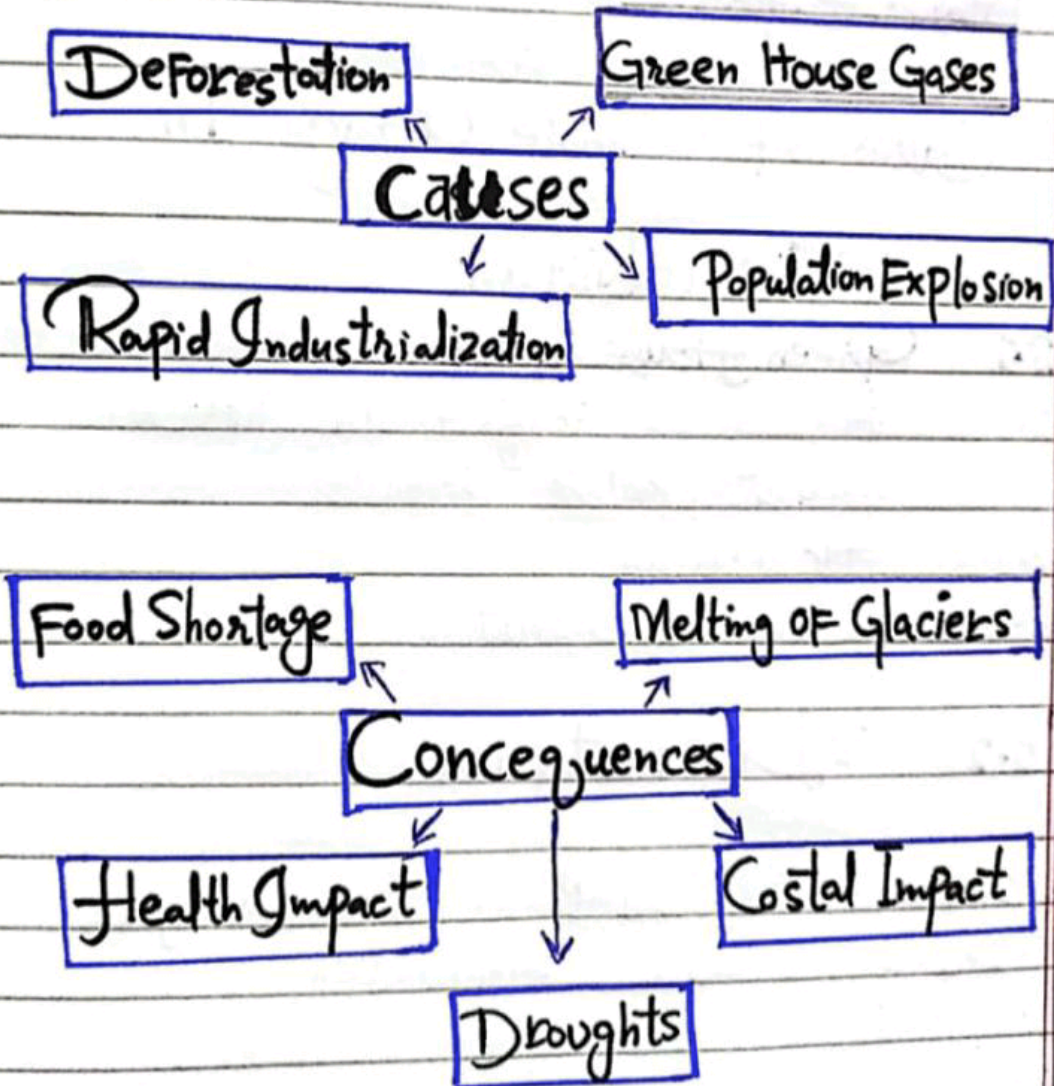 Deforestation
Green House Gases
Causes
Population Explosion
Rapid Industrialization
Food Shortage
Melting of Glaciers
Concequences
Health Impact
Costal Impact
Droughts